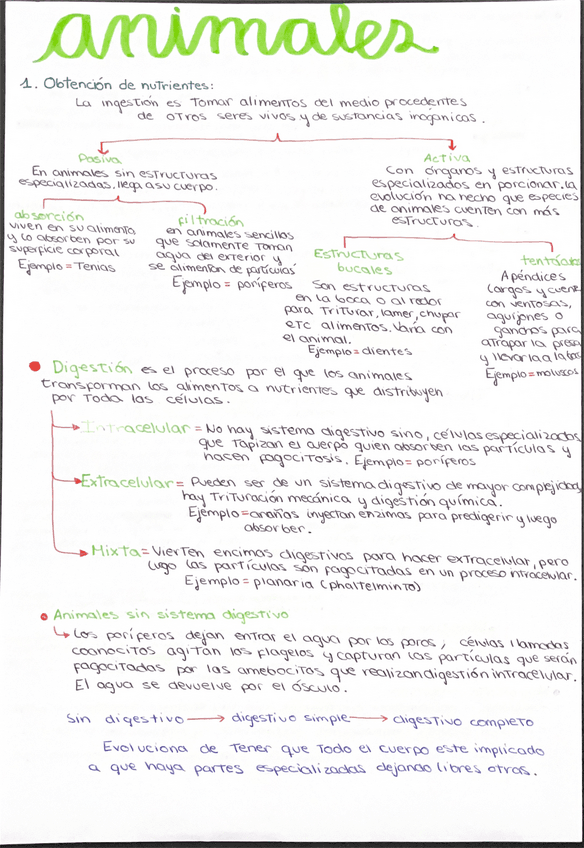 animales
1. Obtención de nutrientes:
La ingestión es Tomar alimentos del medio procedentes
de otros seres vivos y de sustancias inogánicas.
Pasiva
En animales sin estructuras
especializadas, llega a su cuerpo.
absorción
viven en su alimento
y lo absorben por su
superficie corporal
Ejemplo = Tenias
filtración
en animales sencillos
que solamente toman
agua del exterior y
se alimentan de partículas
Ejemplo = poríferos
Activa
Con órganos y estructuras
especializados en porcionar. la
evolución na hecho que especies
de animales cuenten con más
estructuras.
Estructuras
bucales
Son estructuras
en la boca o al redor
para triturar, lamer, chupar
etc alimentos. Varia con
el animal.
Ejemplo = dientes
tentáculos
Apéndices
largos y cuentan
con ventosas,
aguijones o
ganchos para
atrapar la presa
y llevarla a la boca
Ejemplo = moluscos
Digestión es el proceso por el que los animales
transforman los alimentos a nutrientes que distribuyen
por toda las células.
Intracelular = No hay sistema digestivo sino, células especializadas
que tapizan el cuerpo quien absorben las partículas y
hacen fagocitosis. Ejemplo = poríferos
Extracelular = Pueden ser de un sistema digestivo de mayor complejidad,
hay trituración mecánica y digestión química.
Ejemplo = arañas inyectan enzimas para predigerir y luego
absorber.
Mixta = Vierten encimas digestivos para hacer extracelular, pero
lugo las partículas son fagocitadas en un proceso ntracelular.
Ejemplo = planaria (phaltelminto)
Animales sin sistema digestivo
Los poríferos dejan entrar el agua por los poros, células llamadas
coanocitos agitan los flagelos y capturan las partículas que serán
fagocitadas por las amebocitos que realizan digestión intracelular.
El agua se devuelve por el ósculo.
Sin digestivo → digestivo simple → digestivo completo
Evoluciona de tener que todo el cuerpo este implicado
a que haya partes especializadas dejando libres otras.